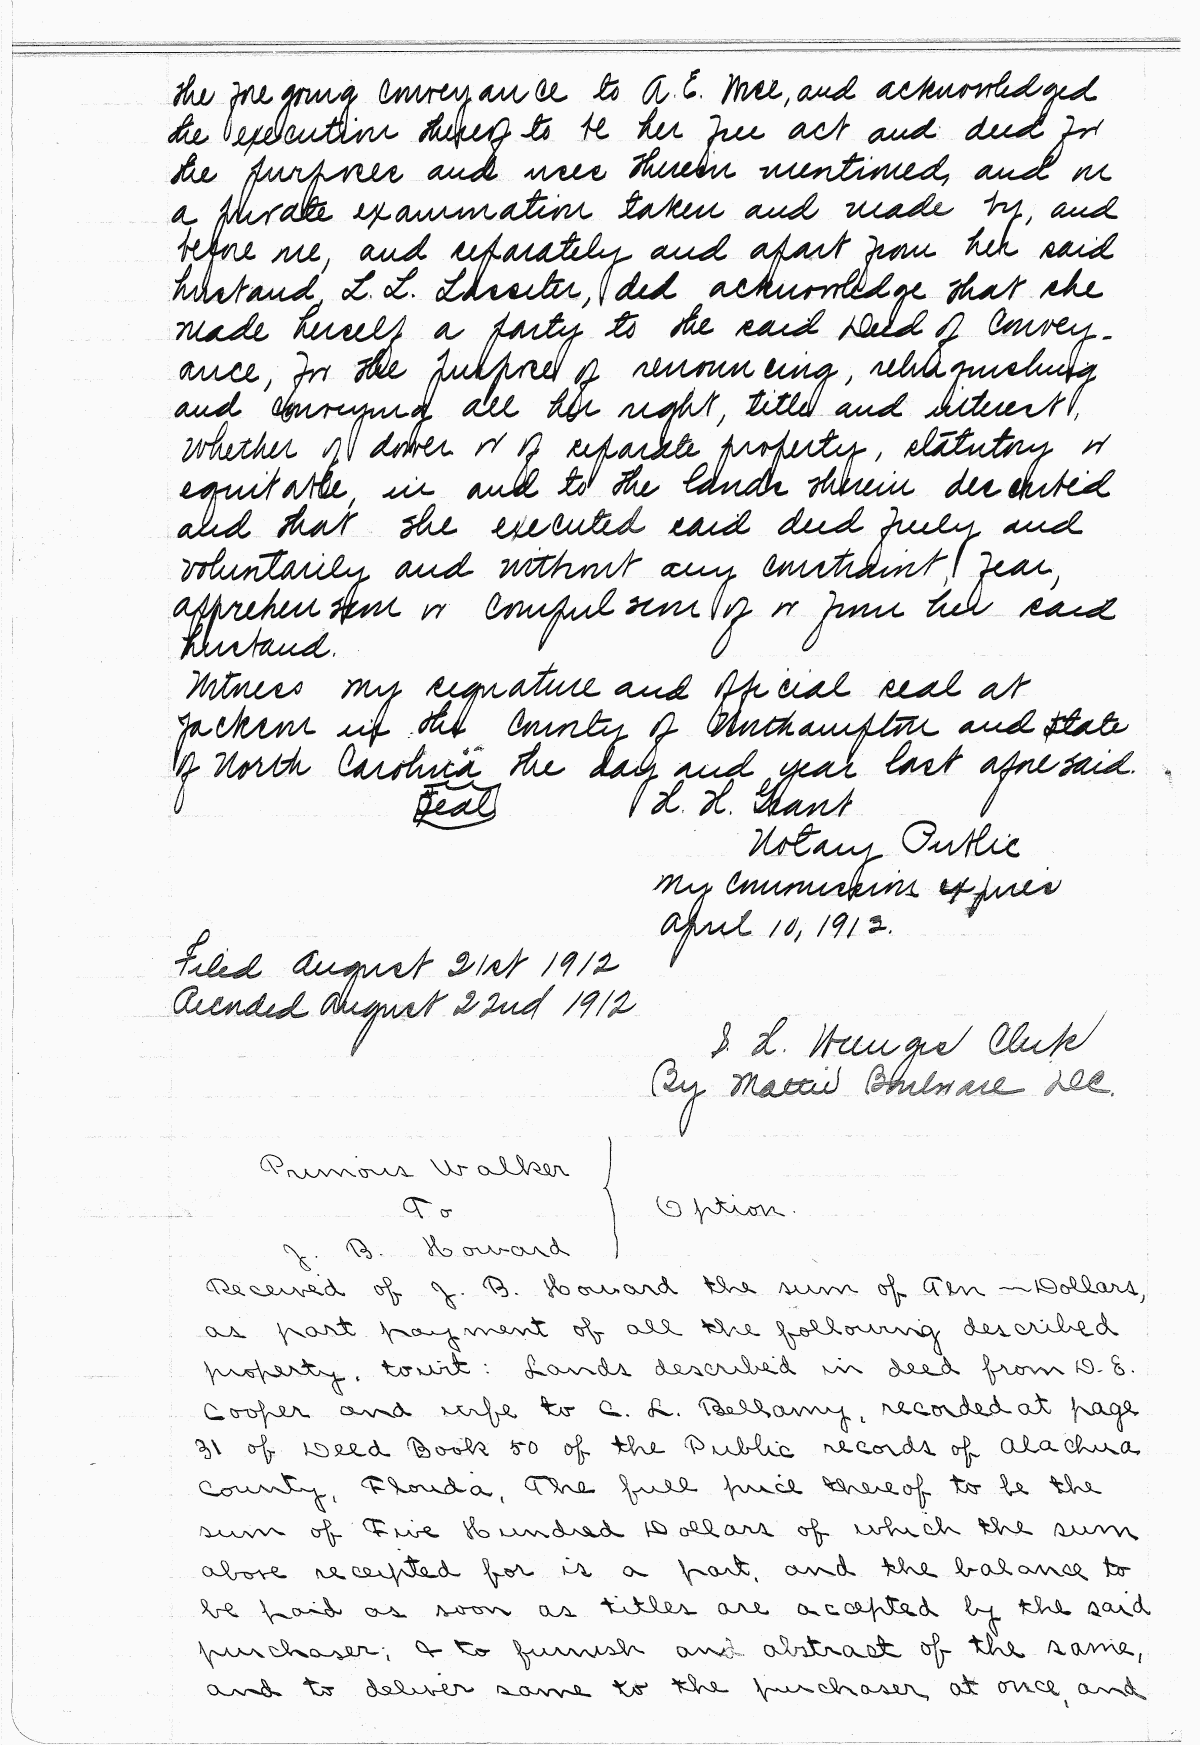 the foregoing conveyance to A. E. Mce, and acknowledged
the execution thereof to be her free act and deed for
the purposes and uses therein mentioned, and on
a private examination taken and made by, and
before me, and separately and apart from her said
husband, L. L. Lassiter, did acknowledge that she
made herself a party to the said Deed of Convey-
ance, for the purpose of renouncing, relinquishing
and conveying all her right, title and interest,
whether of dower or of separate property, statutory or
equitable, in and to the lands therein described
and that she executed said deed freely and
voluntarily and without any constraint, fear,
apprehension or compulsion of or from her said
husband.
Witness my signature and official seal at
Jackson in the County of Northampton and State
of North Carolina the day and year last aforesaid.
Seal H. H. Grant
Notary Public
My Commission expires
April 10, 1913.
Filed August 21st 1912
Recorded August 22nd 1912
S. H. Wienges Clerk
By Mattie Boulware D.C.
Primous Walker
To
J. B. Howard
Option.
Received of J. B. Howard the sum of Ten — Dollars,
as part payment of all the following described
property, towit: Lands described in deed from D. E.
Cooper and wife to C. L. Bellamy, recorded at page
31 of Deed Book 50 of the Public records of Alachua
County, Florida, The full price thereof to be the
sum of Five Hundred Dollars of which the sum
above receipted for is a part, and the balance to
be paid as soon as titles are accepted by the said
purchaser; I to furnish and abstract of the same,
and to deliver same to the purchaser at once, and